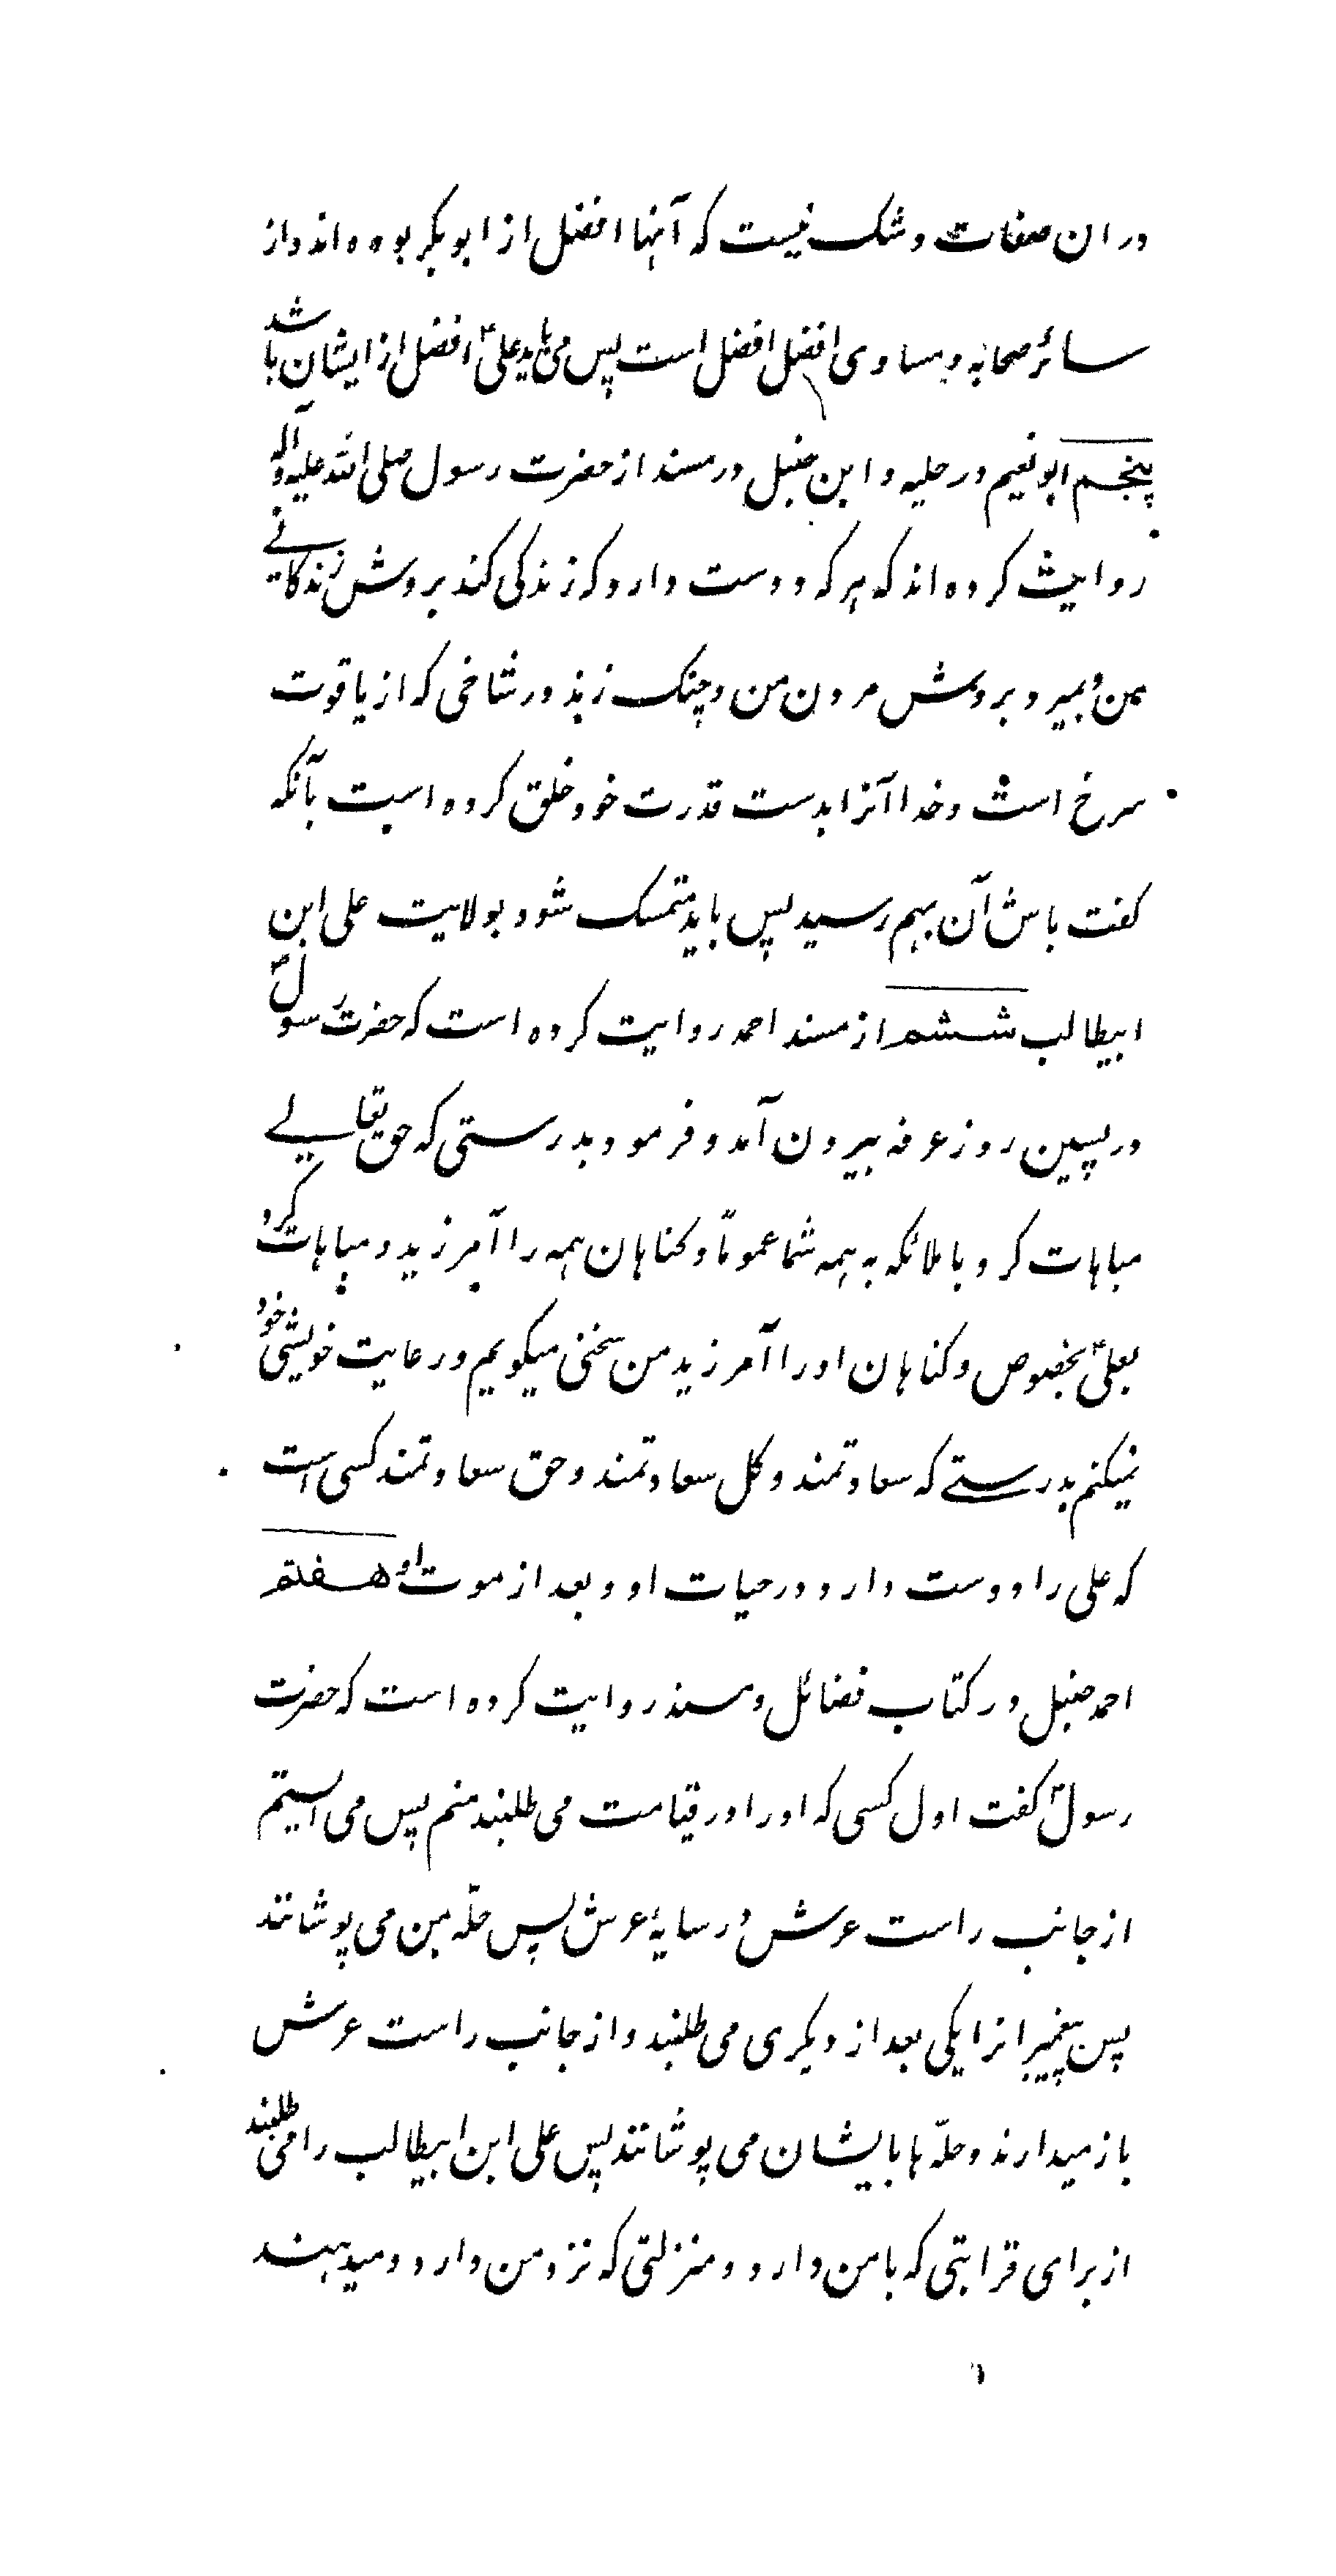 در ان صفات و شک نیست که آنها افضل از ابوبکر بوده اند و از
سائر صحابه و مساوی افضل افضل است پس می باید علیؑ افضل از ایشان باشد
پنجم ابو نعیم در حلیه و ابن حنبل در مسند از حضرت رسول صلی الله علیه و آله
روایت کرده اند که هر که دوست دارد که زندکی کند بروش زندکانے
من و بمیرد بروش مردن من و چنک زند در شاخی که از یاقوت
سرخ است و خدا آنرا بدست قدرت خود خلق کرده است بآنکه
کفت باش آن بهم رسید پس باید متمسک شود بولایت علی ابن
ابیطالب ششم از مسند احمد روایت کرده است که حضرت رسولؐ
در پسین روز عرفه بیرون آمد و فرمود بدرستی که حق تعالے
مباهات کرد با ملائکه به همه شما عموماً و کناهان همه را آمرزید و مباهات کرد
بعلیؑ بخصوص و کناهان او را آمرزید من سخنی میکویم و رعایت خویشی خود
نمیکنم بدرستے که سعادتمند و کل سعادتمند و حق سعادتمند کسی است
که علی را دوست دارد در حیات او و بعد از موت او هفتم
احمد حنبل در کتاب فضائل و مسند روایت کرده است که حضرت
رسولؐ کفت اول کسی که او را در قیامت می طلبند منم پس می ایستم
از جانب راست عرش در سایهٔ عرش پس حلّه بمن می پوشانند
پس پیغمبرانرا یکی بعد از دیکری می طلبند و از جانب راست عرش
باز میدارند و حلّه ها بایشان می پوشانند پس علی ابن ابیطالب را می طلبند
از برای قرابتی که با من دارد و منزلتی که نزد من دارد و میدهند